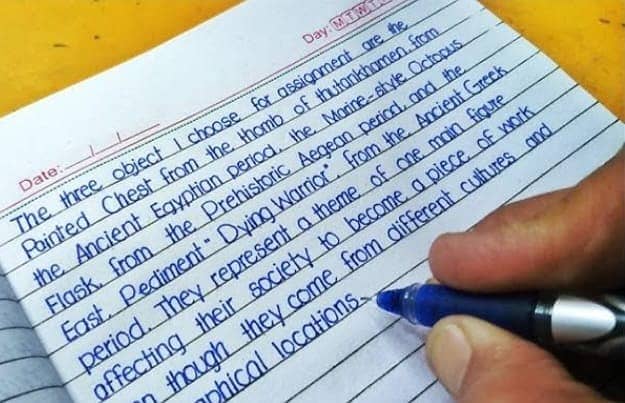 Day: M T W T
Date: __/__/__
The three object I choose for assignment are the
Painted Chest from the thomb of thutankhamen, from
the Ancient Egyptian period, the Marine-style Octopus
Flask, from the Prehistoric Aegean period, and the
East, Pediment "Dying Warrior", from the Ancient Greek
period. They represent a theme of one main figure
affecting their society to become a piece of work
though they come from different cultures and
locations.